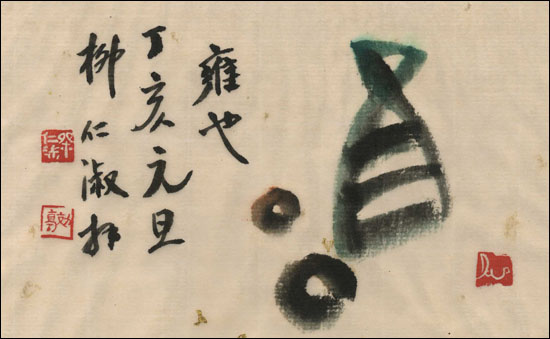 雍也
丁亥元旦
柳仁淑拜